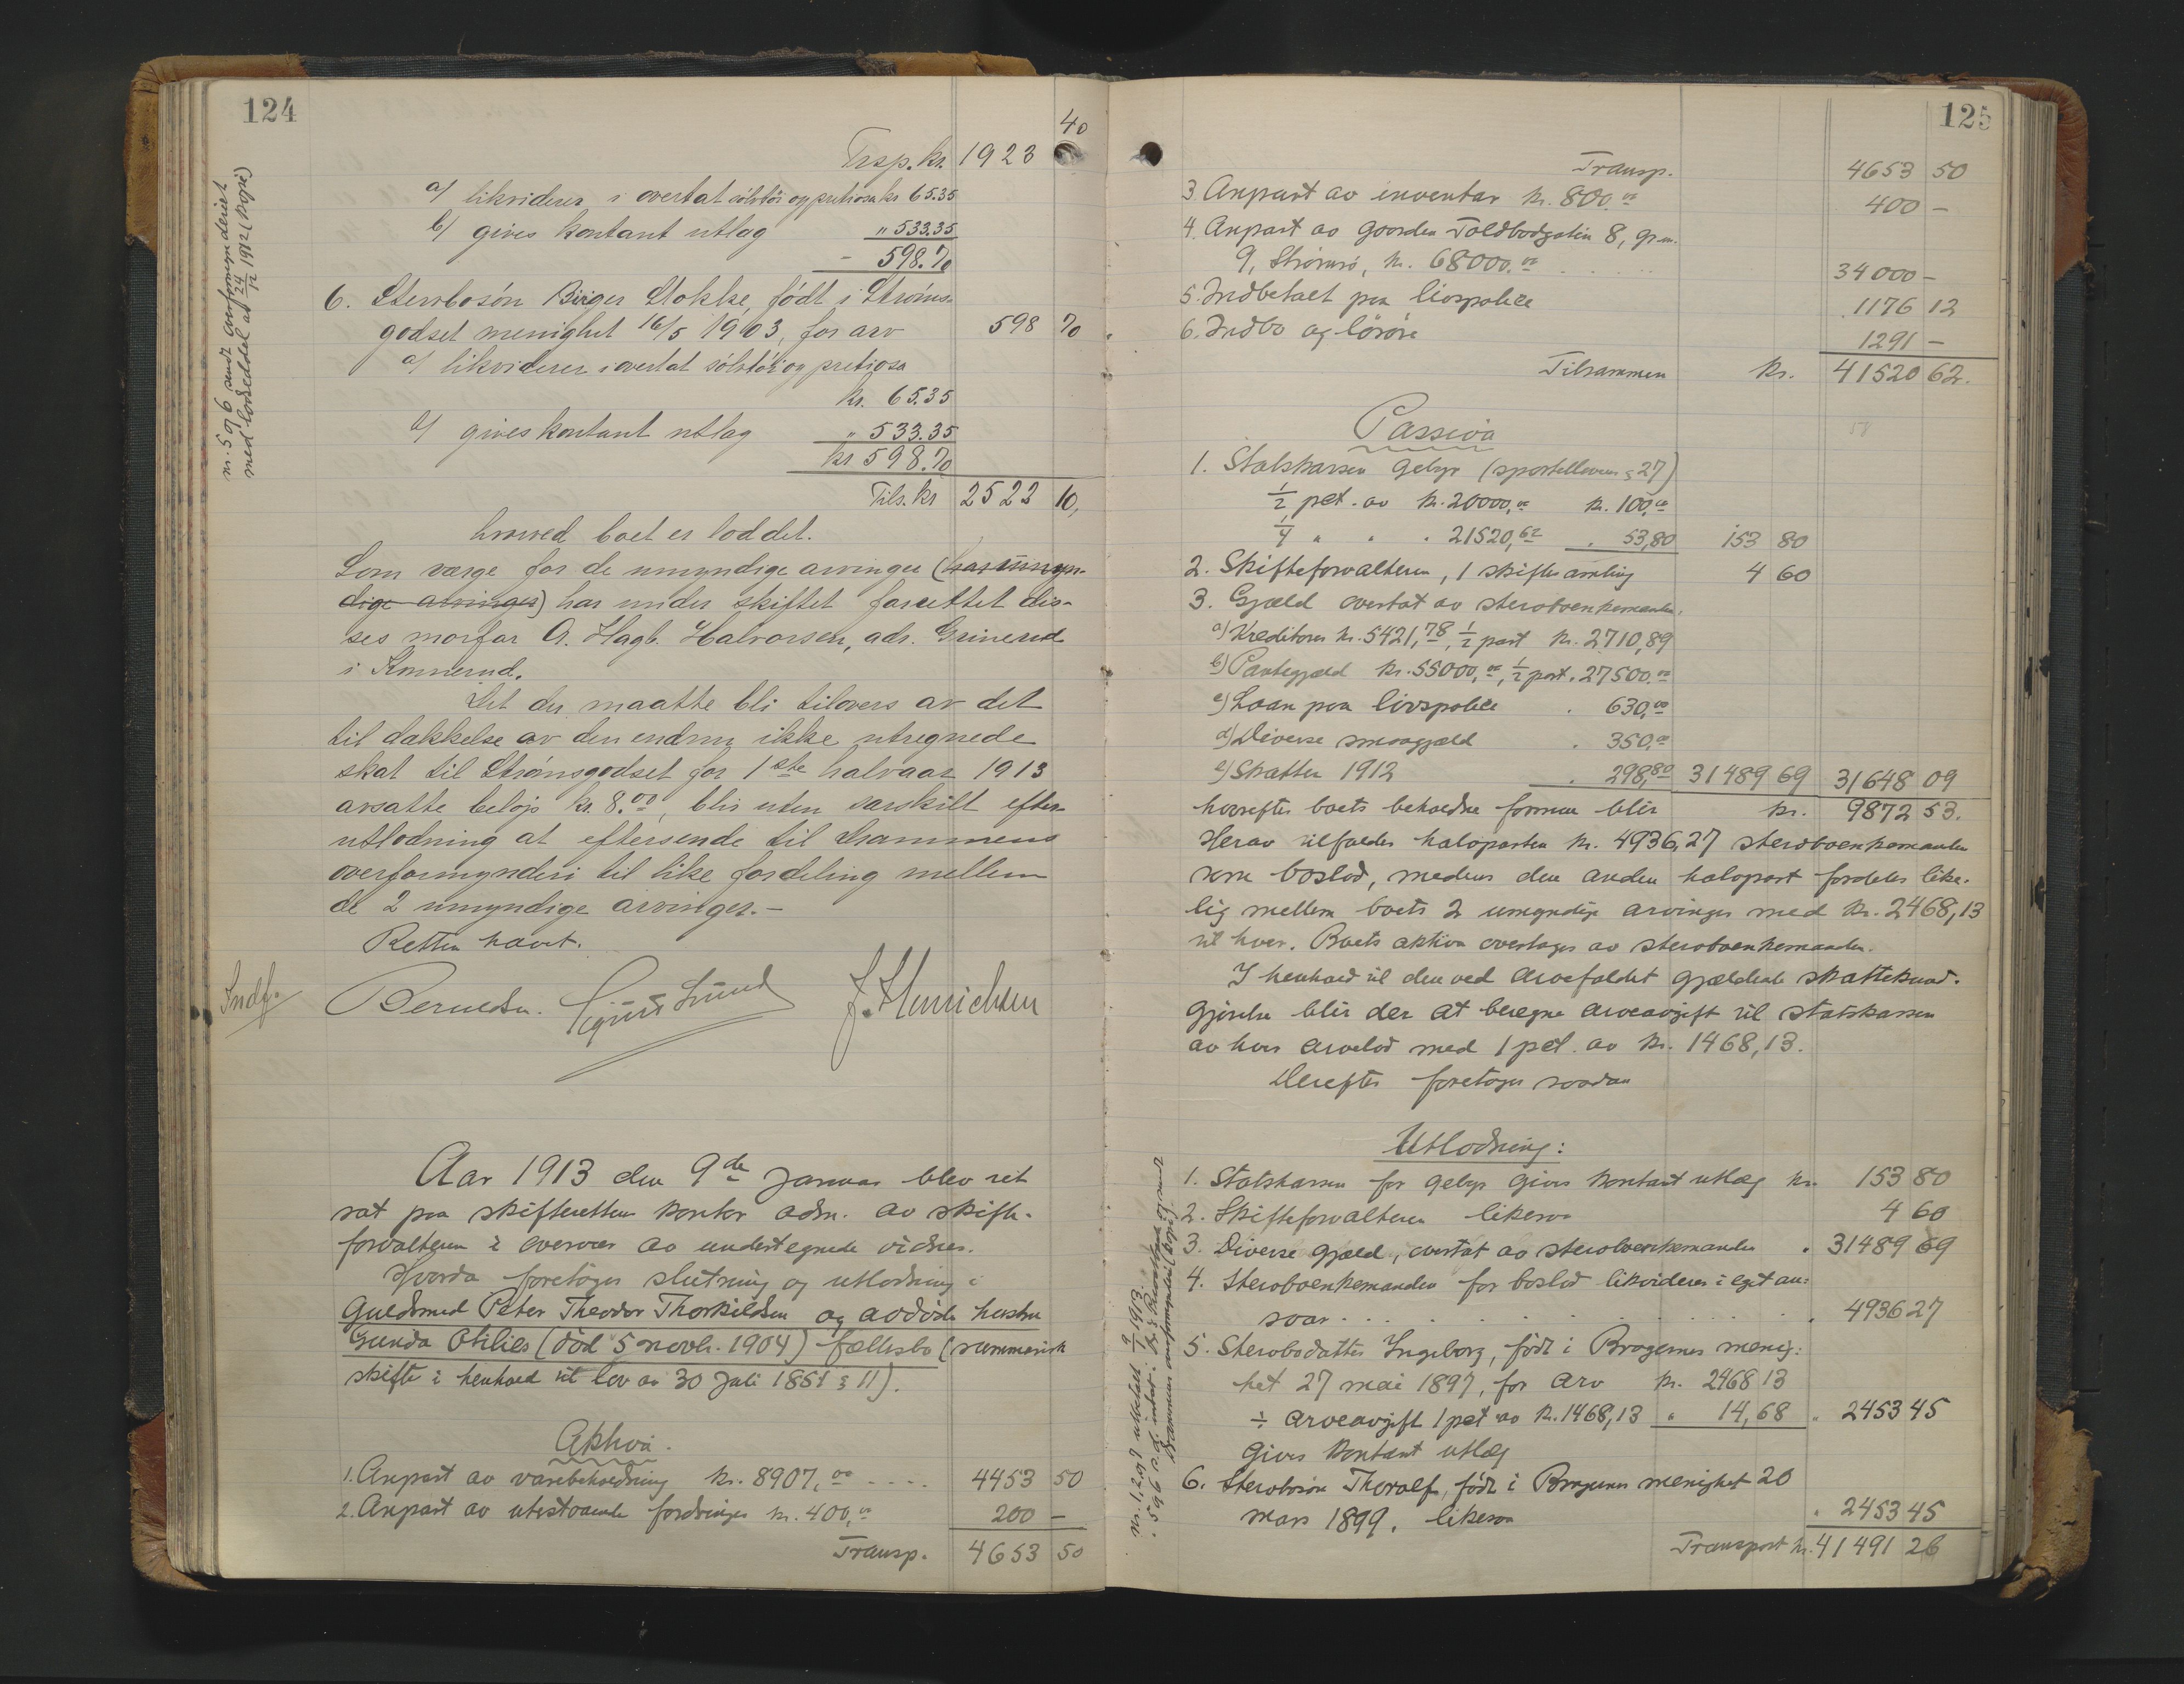 124
Trsp. kr. 1923 40
a/ likvideres i overtat sølvtøi og pretiosa kr 65.35
b/ gives kontant utlag " 533.35
- 598.70
6. Stervbosøn Birger Stokke, født i Strøms-
godset menighet 16/5 1903, for arv 598 70
a/ likvideres i overtat sølvtøi og pretiosa
kr. 65.35
b/ gives kontant utlag " 533.35
kr 598.70
Tils. kr 2522 10,
hvorved boet er loddet.
Som værge for de umyndige arvinger (har umyn-
dige arvinger) har under skiftet forrettet dis-
ses morfar A. Hagb. Halvorsen, adr.
i Konnerud.
Det der maatte bli tilovers av det
til dækkelse av den endnu ikke utregnede
skat til Strømsgodset for 1ste halvaar 1913
avsatte beløp kr. 8.00, blir uten særskilt efter-
utlodning at eftersende til Drammens
overformynderi til like fordeling mellem
de 2 umyndige arvinger.-
Retten hævet.
Indf. Berntsen. Sigurd Lund J. Henrichsen
nr. 5 og 6 sendt overformynderiet
med lodseddel av 24/12 1912 (kopi)
Aar 1913 den 9de Januar blev ret
sat paa skifterettens kontor adm. av skifte-
forvalteren i overvær av undertegnede vidner.
Hvorda foretoges slutning og utlodning i
Guldsmed Peter Theodor Thorkildsen og avdøde hustru
Gunda Otilies (død 5 novbr. 1904) fællesbo (summarisk
skifte i henhold til lov av 30 Juli 1851 § 11).
Aktiva.
1. Anpart av varebeholdning kr. 8907,00 - - - 4453 50
2. Anpart av utestaaende fordringer kr. 400,00 200 -
Transp. 4653 50
125
Transp. 4653 50
3. Anpart av inventar kr. 800.00 400 -
4. Anpart av gaarden Toldbodgaten 8, gr.nr.
9, Strømsø, kr. 68000.00 34000 -
5. Indbetalt paa livspolice 1176 12
6. Indbo og løsøre 1291 -
Tilsammen kr. 41520 62.
Passiva
1. Statskassen gebyr (sportelloven § 27)
1/2 pct. av kr. 20000,00 kr. 100,00
1/4 " " " 21520,62 " 53,80 153 80
2. Skifteforvalteren, 1 skiftesamling 4 60
3. Gjæld overtat av stervboenkemanden.
a) Kreditorer kr. 5421,78, 1/2 part kr. 2710,89
b) Pantegjæld kr. 55000,00, 1/2 part. 27500.00
c) Laan paa livspolice . 630,00
d) Diverse smaagjæld . 350,00
e) Skatter 1912 . 298,80 31489 69 31648 09
hvorefter boets beholdne formue blir kr. 9872 53.
Herav tilfalder halvparten kr. 4936,27 stervboenkemanden
som boslod, medens den anden halvpart fordeles like-
lig mellem boets 2 umyndige arvinger med kr. 2468,13
til hver. Boets aktiva overtages av stervboenkemanden.
I henhold til den ved arvefaldet gjældende skattekund-
gjørelse blir der at beregne arveavgift til statskassen
av hver arvelod med 1 pct. av kr. 1468,13.
Derefter foretages saadan
Utlodning:
1. Statskassen for gebyr gives kontant utlæg kr. 153 80
2. Skifteforvalteren likesaa 4 60
3. Diverse gjæld, overtat av stervboenkemanden . 31489 69
4. Stervboenkemanden for boslod likvideres i eget an=
svar . . . 4936 27
5. Stervbodatter Ingeborg, født i Bragernes menig=
het 27 mai 1897, for arv kr. 2468 13
÷ arveavgift 1 pct av kr. 1468,13 " 14,68 " 2453 45
gives kontant utlæg
6. Stervbosøn Thoralf, født i Bragernes menighet 20
mars 1899, likesaa . 2453 45
Transport kr. 41491 26
nr. 1, 2 og utbetalt 9/1 1913